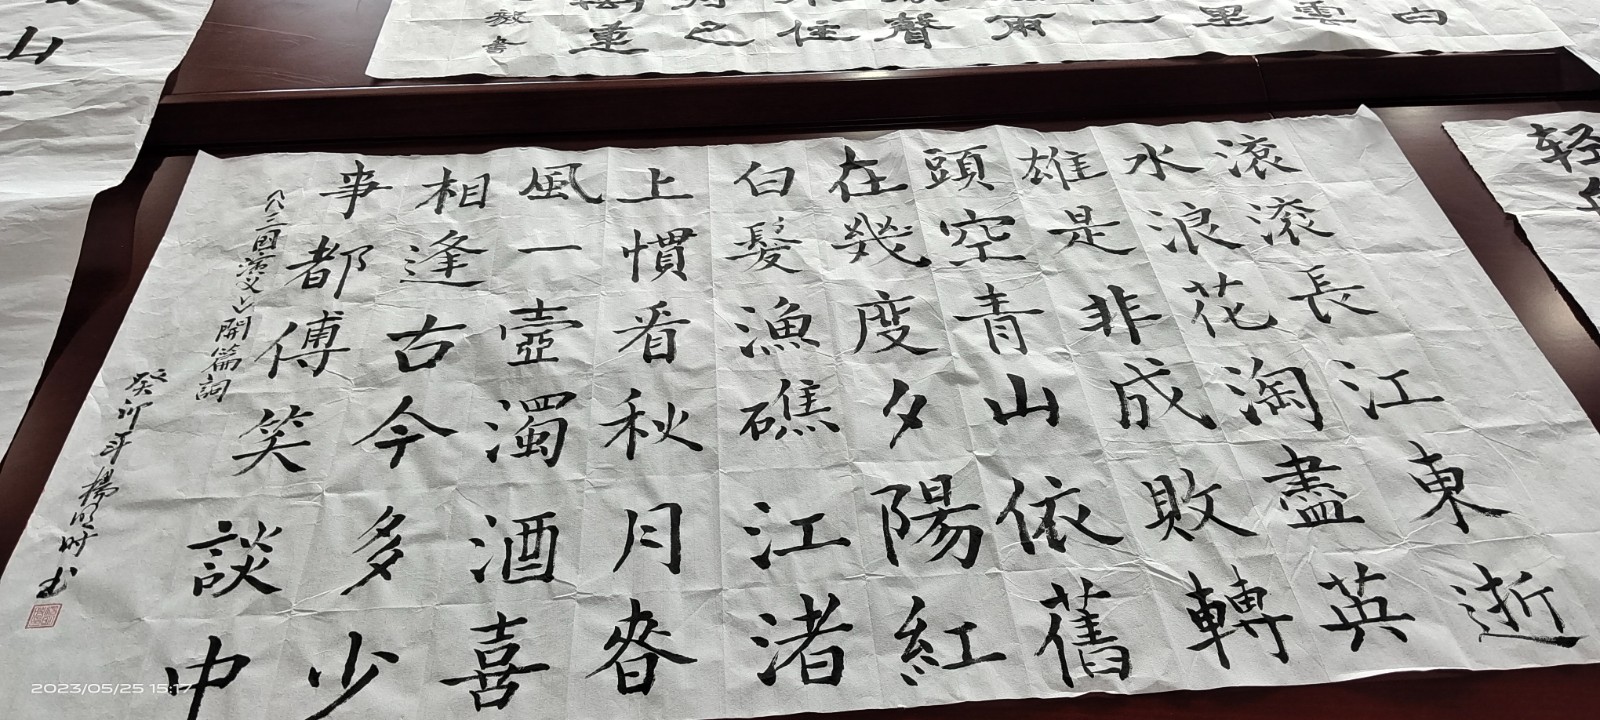 滚滚長江東逝
水浪花淘盡英
雄是非成敗轉
頭空青山依舊
在幾度夕陽紅
白髮漁礁江渚
上慣看秋月春
風一壺濁酒喜
相逢古今多少
事都傅笑談中
三国演义之開篇詞
癸卯年楊明时书
白
雲
里
一
雨
聲
住
之
書
轻
山
2023/05/25 15:17